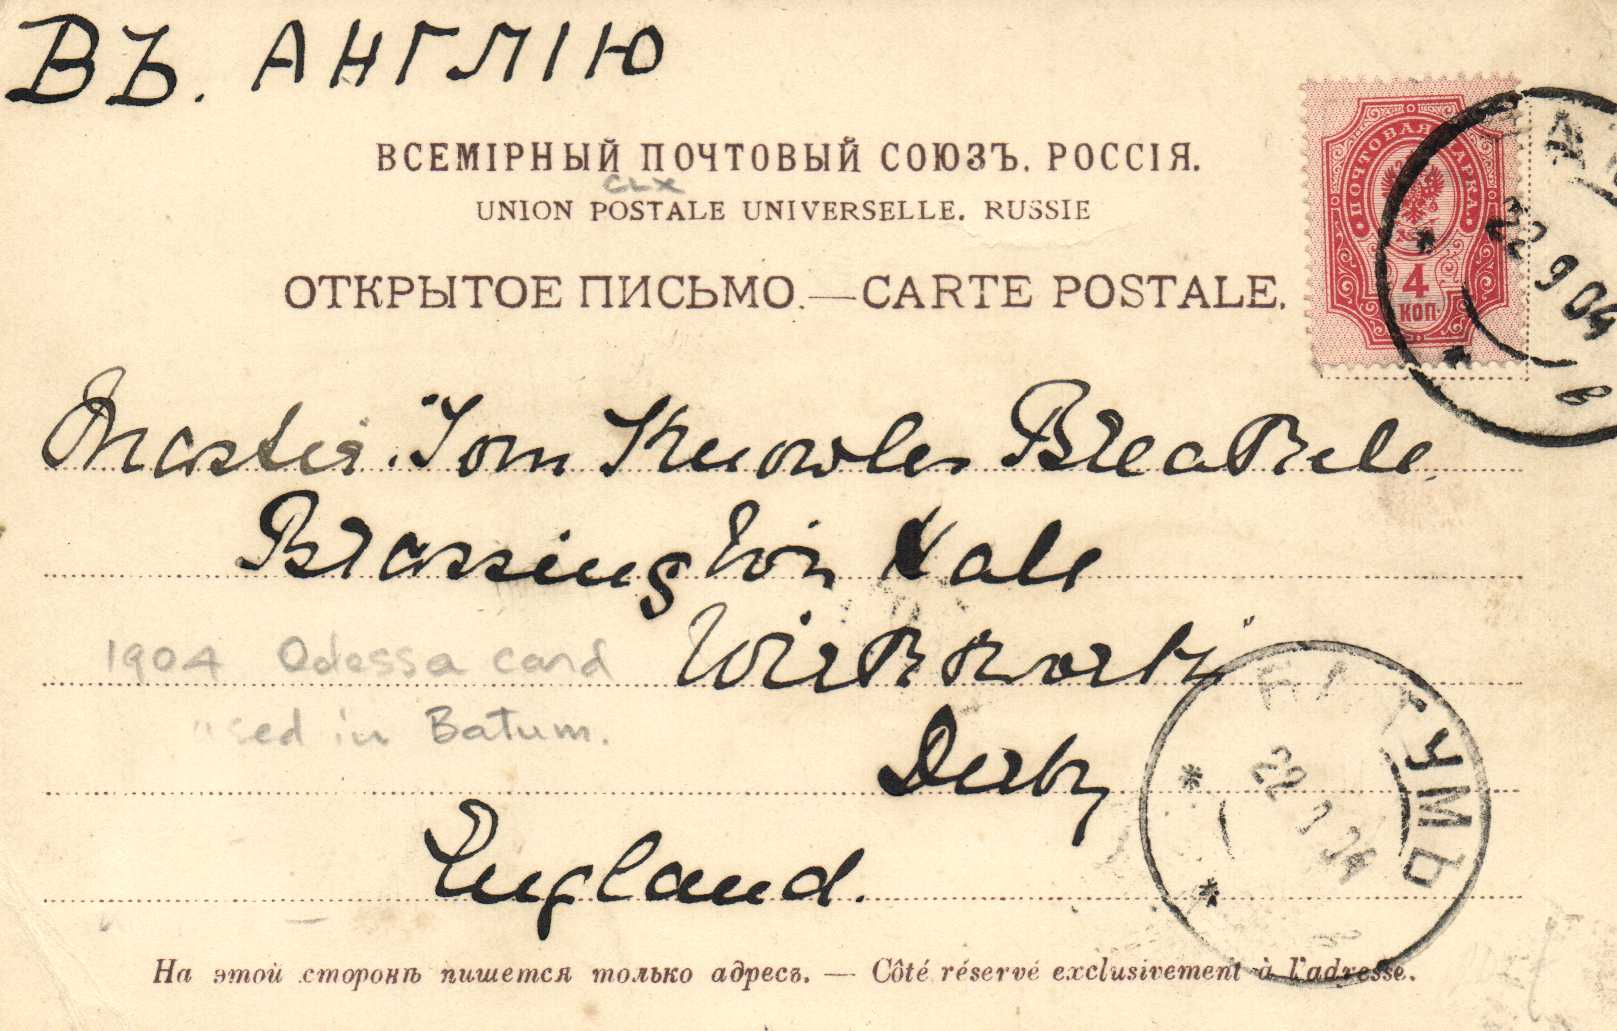 ВЪ. АНГЛІЮ
ВСЕМІРНЫЙ ПОЧТОВЫЙ СОЮЗЪ. РОССІЯ.
CLX
UNION POSTALE UNIVERSELLE. RUSSIE
ОТКРЫТОЕ ПИСЬМО.—CARTE POSTALE.
ПОЧТОВАЯ МАРКА
4
КОП
22 9 04
в
Master. Tom Knowles
Brassington Hall
1904 Odessa card Wirksworth
used in Batum.
Derby
БАТУМЪ
22 9 04
England.
На этой сторонѣ пишется только адресъ. — Côté réservé exclusivement à l'adresse.